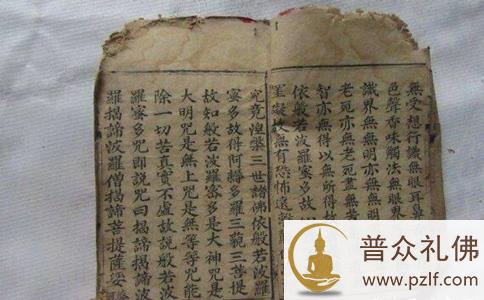 無受想行識無眼耳鼻
色聲香味觸法無眼界
識界無無明亦無無明
老死亦無老死盡無苦
智亦無得以無所得故
依般若波羅蜜多故
罣礙故無有恐怖遠
究竟涅槃三世諸佛依般若波羅
蜜多故得阿耨多羅三藐三菩提
故知般若波羅蜜多是大神咒是
大明咒是無上咒是無等等咒能
除一切苦真實不虛故說般若波
羅蜜多咒即說咒曰揭諦揭諦波
羅揭諦波羅僧揭諦菩提薩婆
普众礼佛
www.pzlf.com